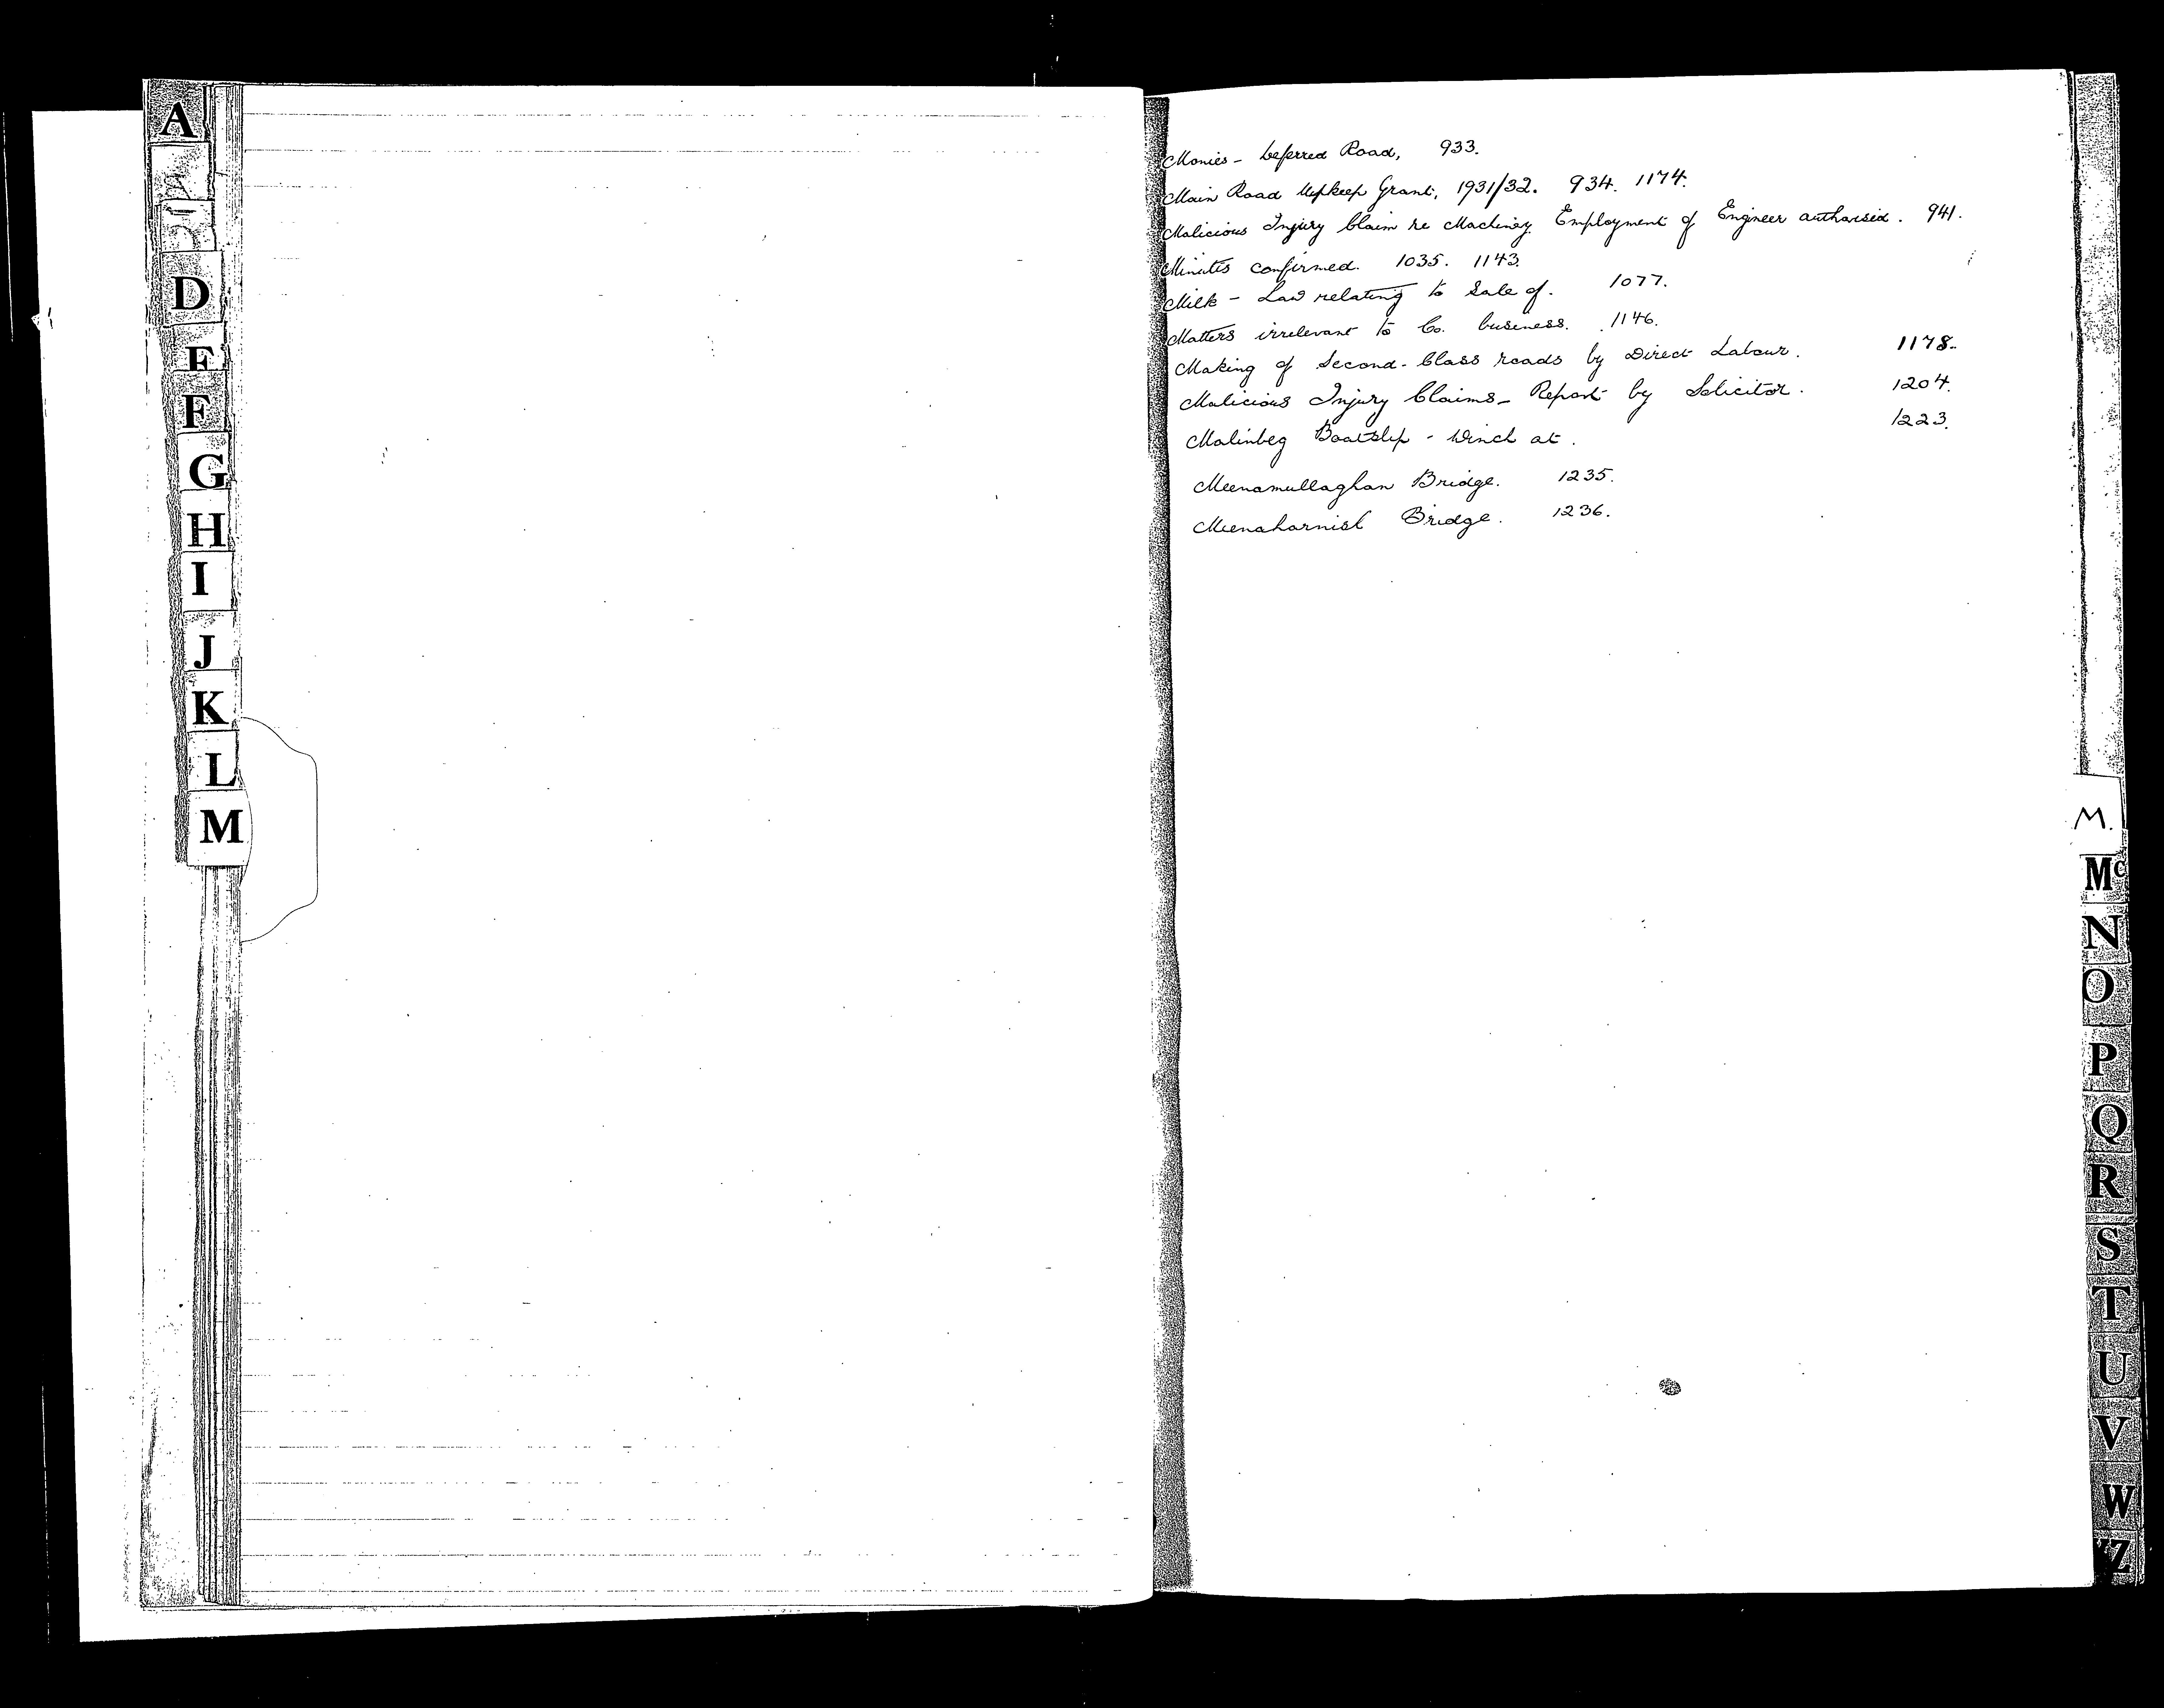 A
D
E
F
G
H
I
J
K
L
M
Monies - Deferred Road, 933.
Main Road Upkeep Grant, 1931/32. 934. 1174.
Malicious Injury Claim re Machinery Employment of Engineer authorised. 941.
Minutes confirmed. 1035. 1143.
Milk - Law relating to Sale of. 1077.
Matters irrelevant to Co. business. 1146.
Making of Second-Class roads by Direct Labour. 1178.
Malicious Injury Claims - Report by Solicitor. 1204.
Malinbeg Boatslip - Winch at. 1223.
Meenamullaghan Bridge. 1235.
Bridge. 1236.
M.
Mc
N
O
P
Q
R
S
T
U
V
W
YZ